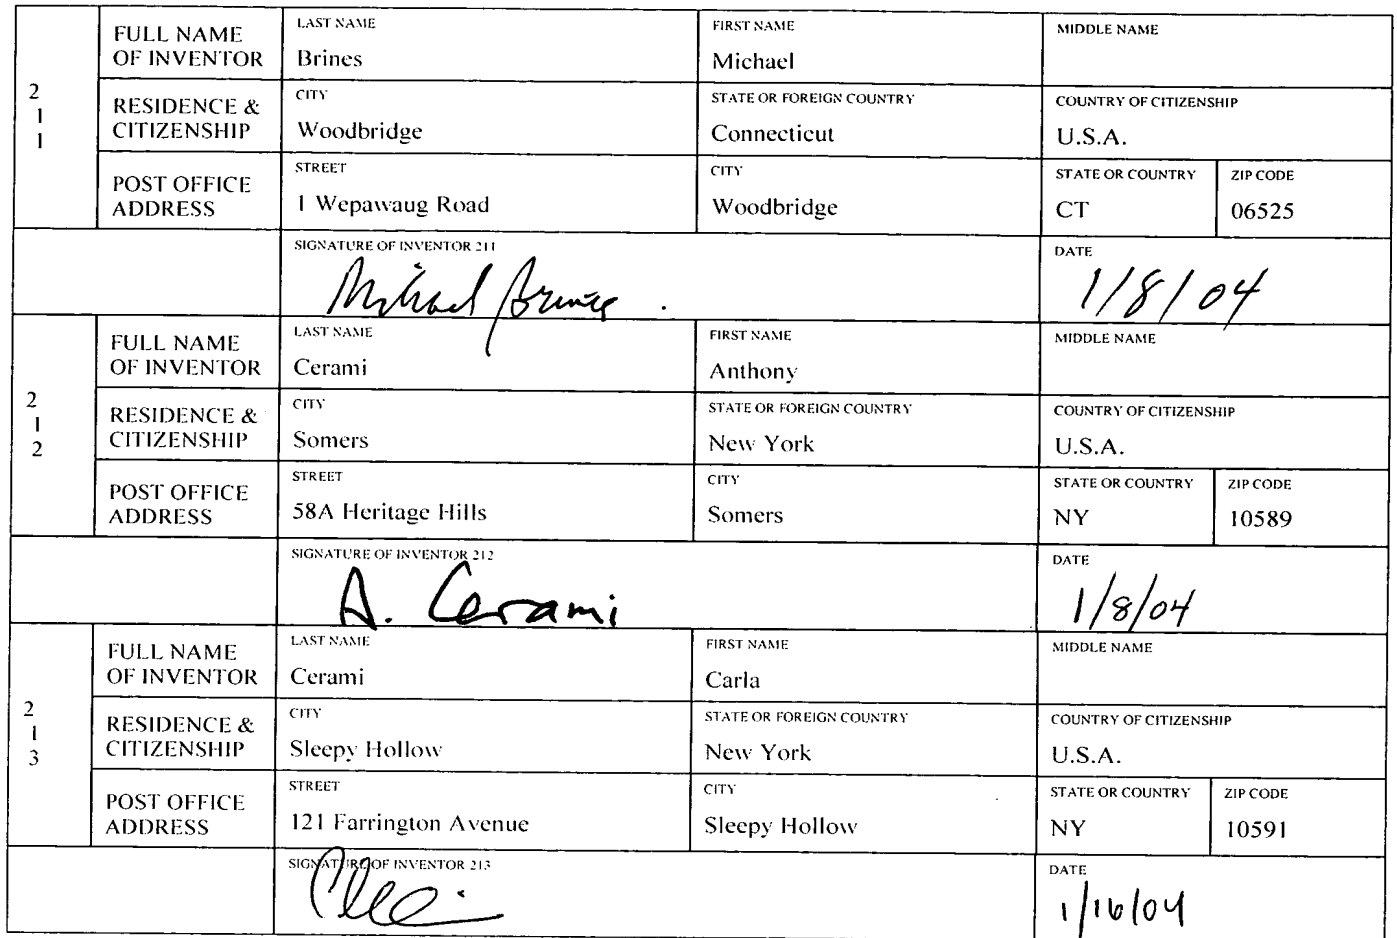 FULL NAME OF INVENTOR
LAST NAME
Brines
FIRST NAME
Michael
MIDDLE NAME
2
1
1
RESIDENCE & CITIZENSHIP
CITY
Woodbridge
STATE OR FOREIGN COUNTRY
Connecticut
COUNTRY OF CITIZENSHIP
U.S.A.
POST OFFICE ADDRESS
STREET
1 Wepawaug Road
CITY
Woodbridge
STATE OR COUNTRY
CT
ZIP CODE
06525
SIGNATURE OF INVENTOR 211
Michael Brines
DATE
1/8/04
FULL NAME OF INVENTOR
LAST NAME
Cerami
FIRST NAME
Anthony
MIDDLE NAME
2
1
2
RESIDENCE & CITIZENSHIP
CITY
Somers
STATE OR FOREIGN COUNTRY
New York
COUNTRY OF CITIZENSHIP
U.S.A.
POST OFFICE ADDRESS
STREET
58A Heritage Hills
CITY
Somers
STATE OR COUNTRY
NY
ZIP CODE
10589
SIGNATURE OF INVENTOR 212
A. Cerami
DATE
1/8/04
FULL NAME OF INVENTOR
LAST NAME
Cerami
FIRST NAME
Carla
MIDDLE NAME
2
1
3
RESIDENCE & CITIZENSHIP
CITY
Sleepy Hollow
STATE OR FOREIGN COUNTRY
New York
COUNTRY OF CITIZENSHIP
U.S.A.
POST OFFICE ADDRESS
STREET
121 Farrington Avenue
CITY
Sleepy Hollow
STATE OR COUNTRY
NY
ZIP CODE
10591
SIGNATURE OF INVENTOR 213
DATE
1/16/04